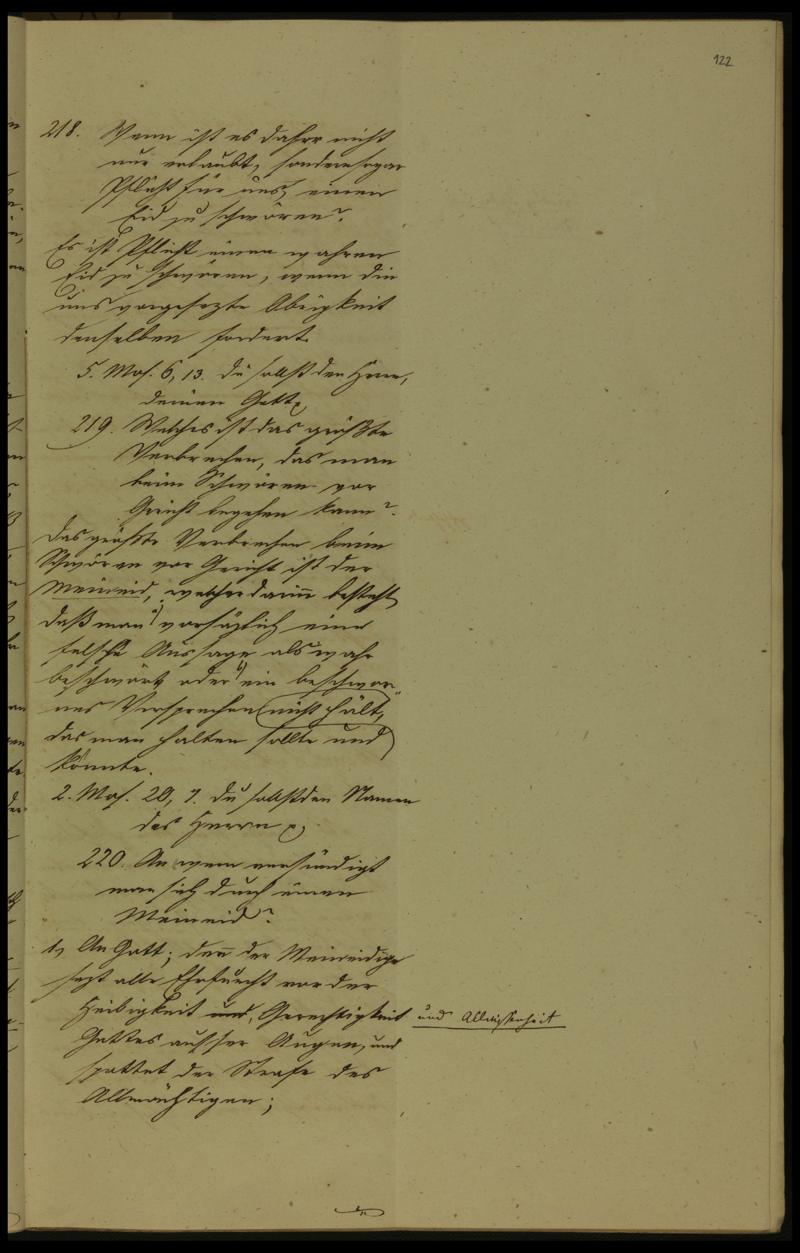 122
218. Wann ist es daher nicht
nur erlaubt, sondern sogar
Pflicht für uns, einen
Eid zu schwören?
Es ist Pflicht einen wahren
Eid zu schwören, wenn die
uns vorgesezte Obrigkeit
denselben fordert.
5. Mos. 6, 13. Du sollst den Herrn,
deinen Gott
219. Welches ist das größte
Verbrechen, das man
beim Schwören vor
Gericht begehen kann?
Das größte Verbrechen beim
Schwören vor Gericht ist der
Meineid, welcher darin besteht,
daß man vorsäzlich eine
falsche Aussage als wahr
beschwört oder ein beschwor-
nes Versprechen nicht hält,
das man halten sollte und
könnte.
2. Mos. 20, 7. Du sollst den Namen
des Herrn
220. An wem versündigt
man sich durch einen
Meineid?
1, An Gott; denn der Meineidige
sezt alle Ehrfurcht vor der
Heiligkeit und, Gerechtigkeit und Allwissenheit
Gottes ausser Augen, und
spottet der Strafe des
Allmächtigen;